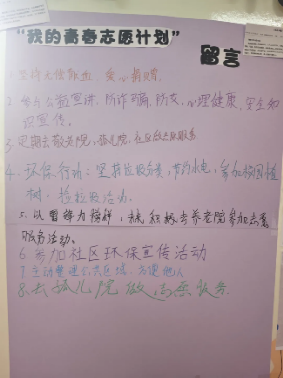 “我的青春志愿计划”
留言
1.坚持无偿献血 爱心捐赠.
2.参与公益宣讲，防诈骗，防艾，心理健康，安全知
识宣传。
3.定期去敬老院，孤儿院，社区
4.环保行动：坚持垃圾分类，节约水电，参加
树、捡垃圾活动.
5.以雷锋为榜样，积极去养老院参加志愿
服务活动。
6.参加社区环保宣传活动
7.主动整理公共区域，方便他人
8.去孤儿院做志愿服务.